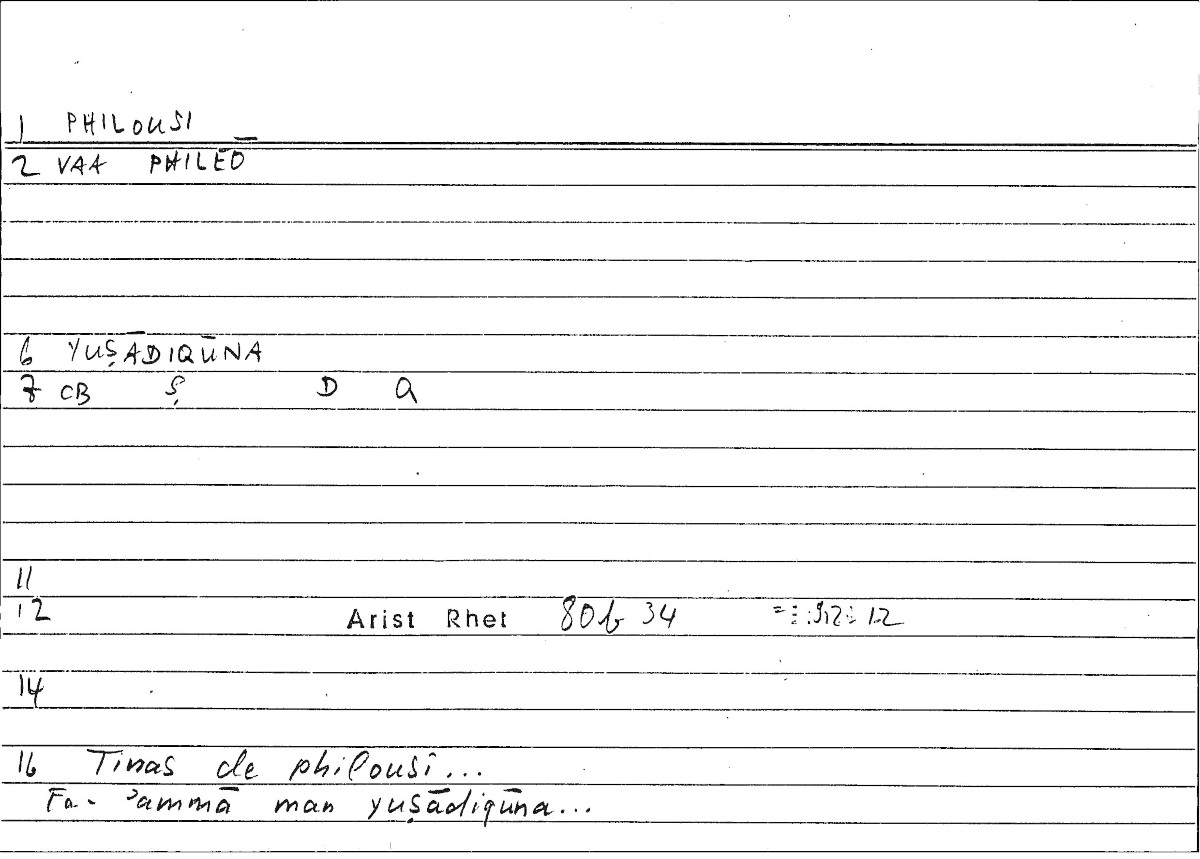 1 PHILOUSI
2 VAA PHILEŌ
6 YUṢĀDIQŪNA
7 CB Ṣ D Q
11
12 Arist Rhet 80b 34 = 12
14
16 Tinas de philousi...
Fa-ʾammā man yuṣādiqūna...